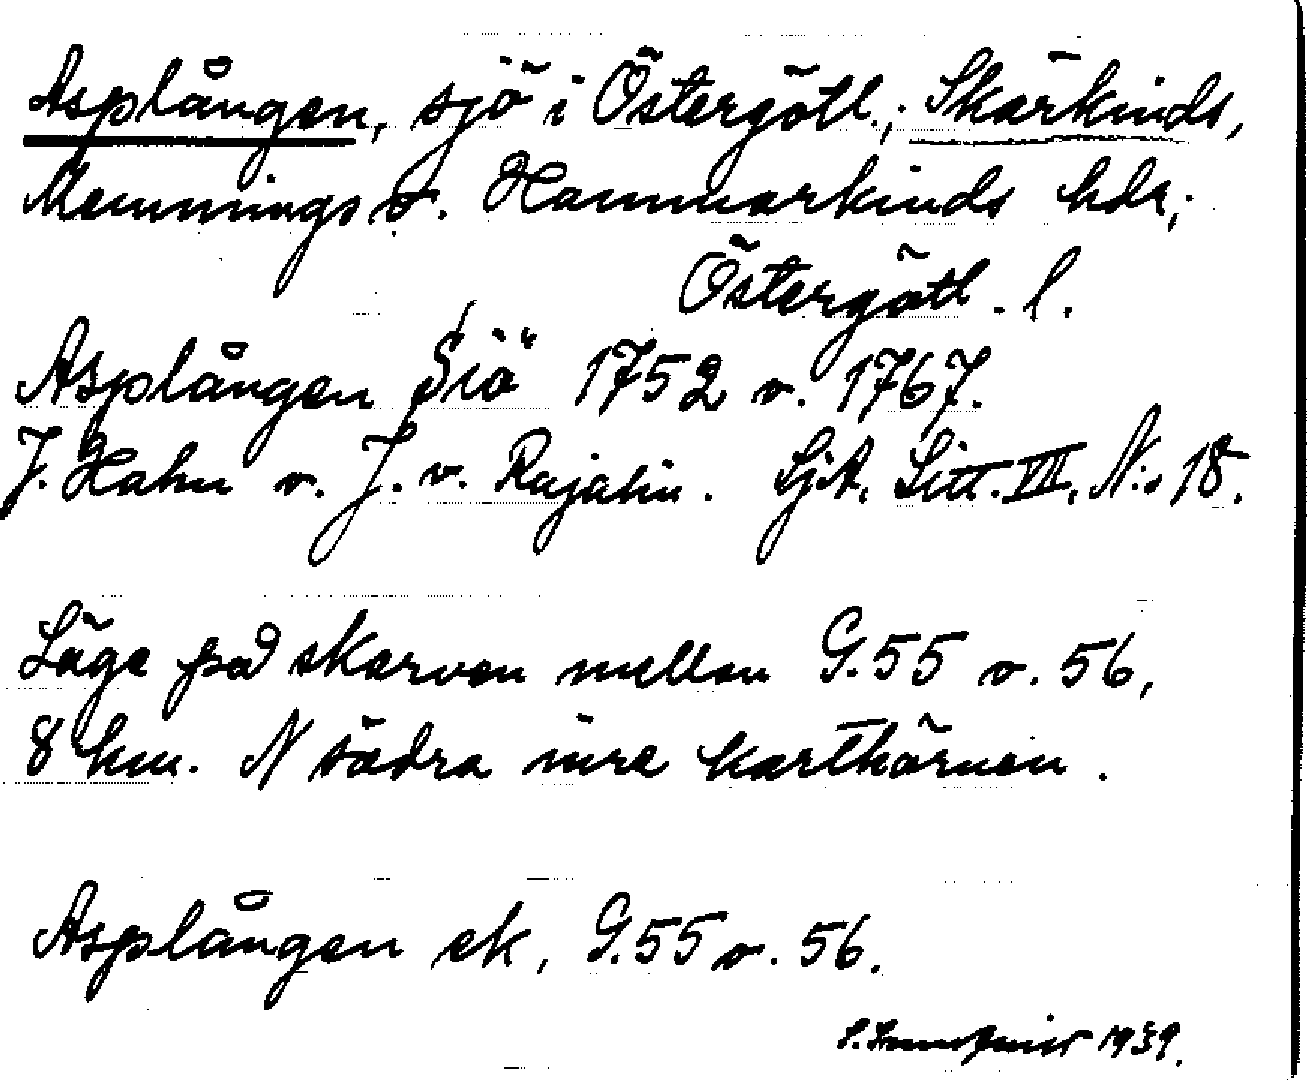 Asplången, sjö i Östergötl.; Skärkinds,
Memmings o. Hammarkinds hdr;
Östergötl. l.
Asplången Siö 1752 o. 1767.
J. Hahn o. J. v. Rajalin. Sj.A. Litt. VII. N:o 18.
Läge på skarven mellan G.55 o. 56,
8 km. N södra inre karthörnen.
Asplången ek, G.55 o. 56.
1939.